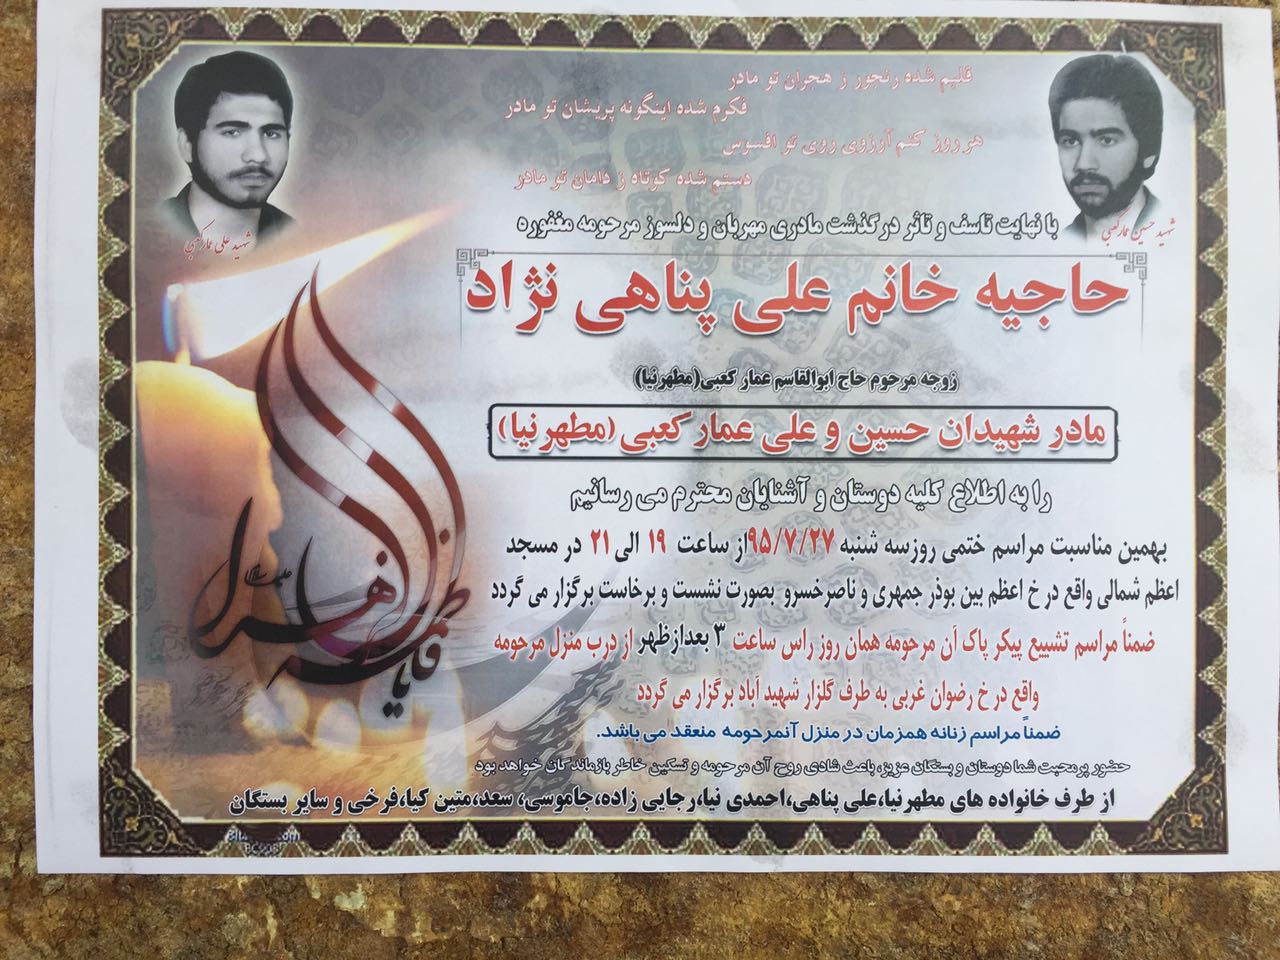 قلبم شده رنجور ز هجران تو مادر
فکرم شده اینگونه پریشان تو مادر
هر روز کنم آرزوی روی تو افسوس
دستم شده کوتاه ز دامان تو مادر
شهید حسین عمار کعبی
شهید علی عمار کعبی
با نهایت تاسف و تاثر درگذشت مادری مهربان و دلسوز مرحومه مغفوره
حاجیه خانم علی پناهی نژاد
زوجه مرحوم حاج ابوالقاسم عمار کعبی(مطهرنیا)
مادر شهیدان حسین و علی عمار کعبی (مطهر نیا)
را به اطلاع کلیه دوستان و آشنایان محترم می رسانیم
بهمین مناسبت مراسم ختمی روزسه شنبه ۹۵/۷/۲۷از ساعت ۱۹ الی ۲۱ در مسجد
اعظم شمالی واقع در خ اعظم بین بوذر جمهری و ناصرخسرو بصورت نشست و برخاست برگزار می گردد
ضمناً مراسم تشییع پیکر پاک آن مرحومه همان روز راس ساعت ۳ بعدازظهر از درب منزل مرحومه
واقع در خ رضوان غربی به طرف گلزار شهید آباد برگزار می گردد
ضمناً مراسم زنانه همزمان در منزل آنمرحومه منعقد می باشد.
حضور پرمحبت شما دوستان و بستگان عزیز، باعث شادی روح آن مرحومه و تسکین خاطر بازماندگان خواهد بود
از طرف خانواده های مطهرنیا،علی پناهی،احمدی نیا،رجایی زاده،جاموسی، سعد،متین کیا،فرخی و سایر بستگان
یا فاطمه الزهرا
سلام الله علیها